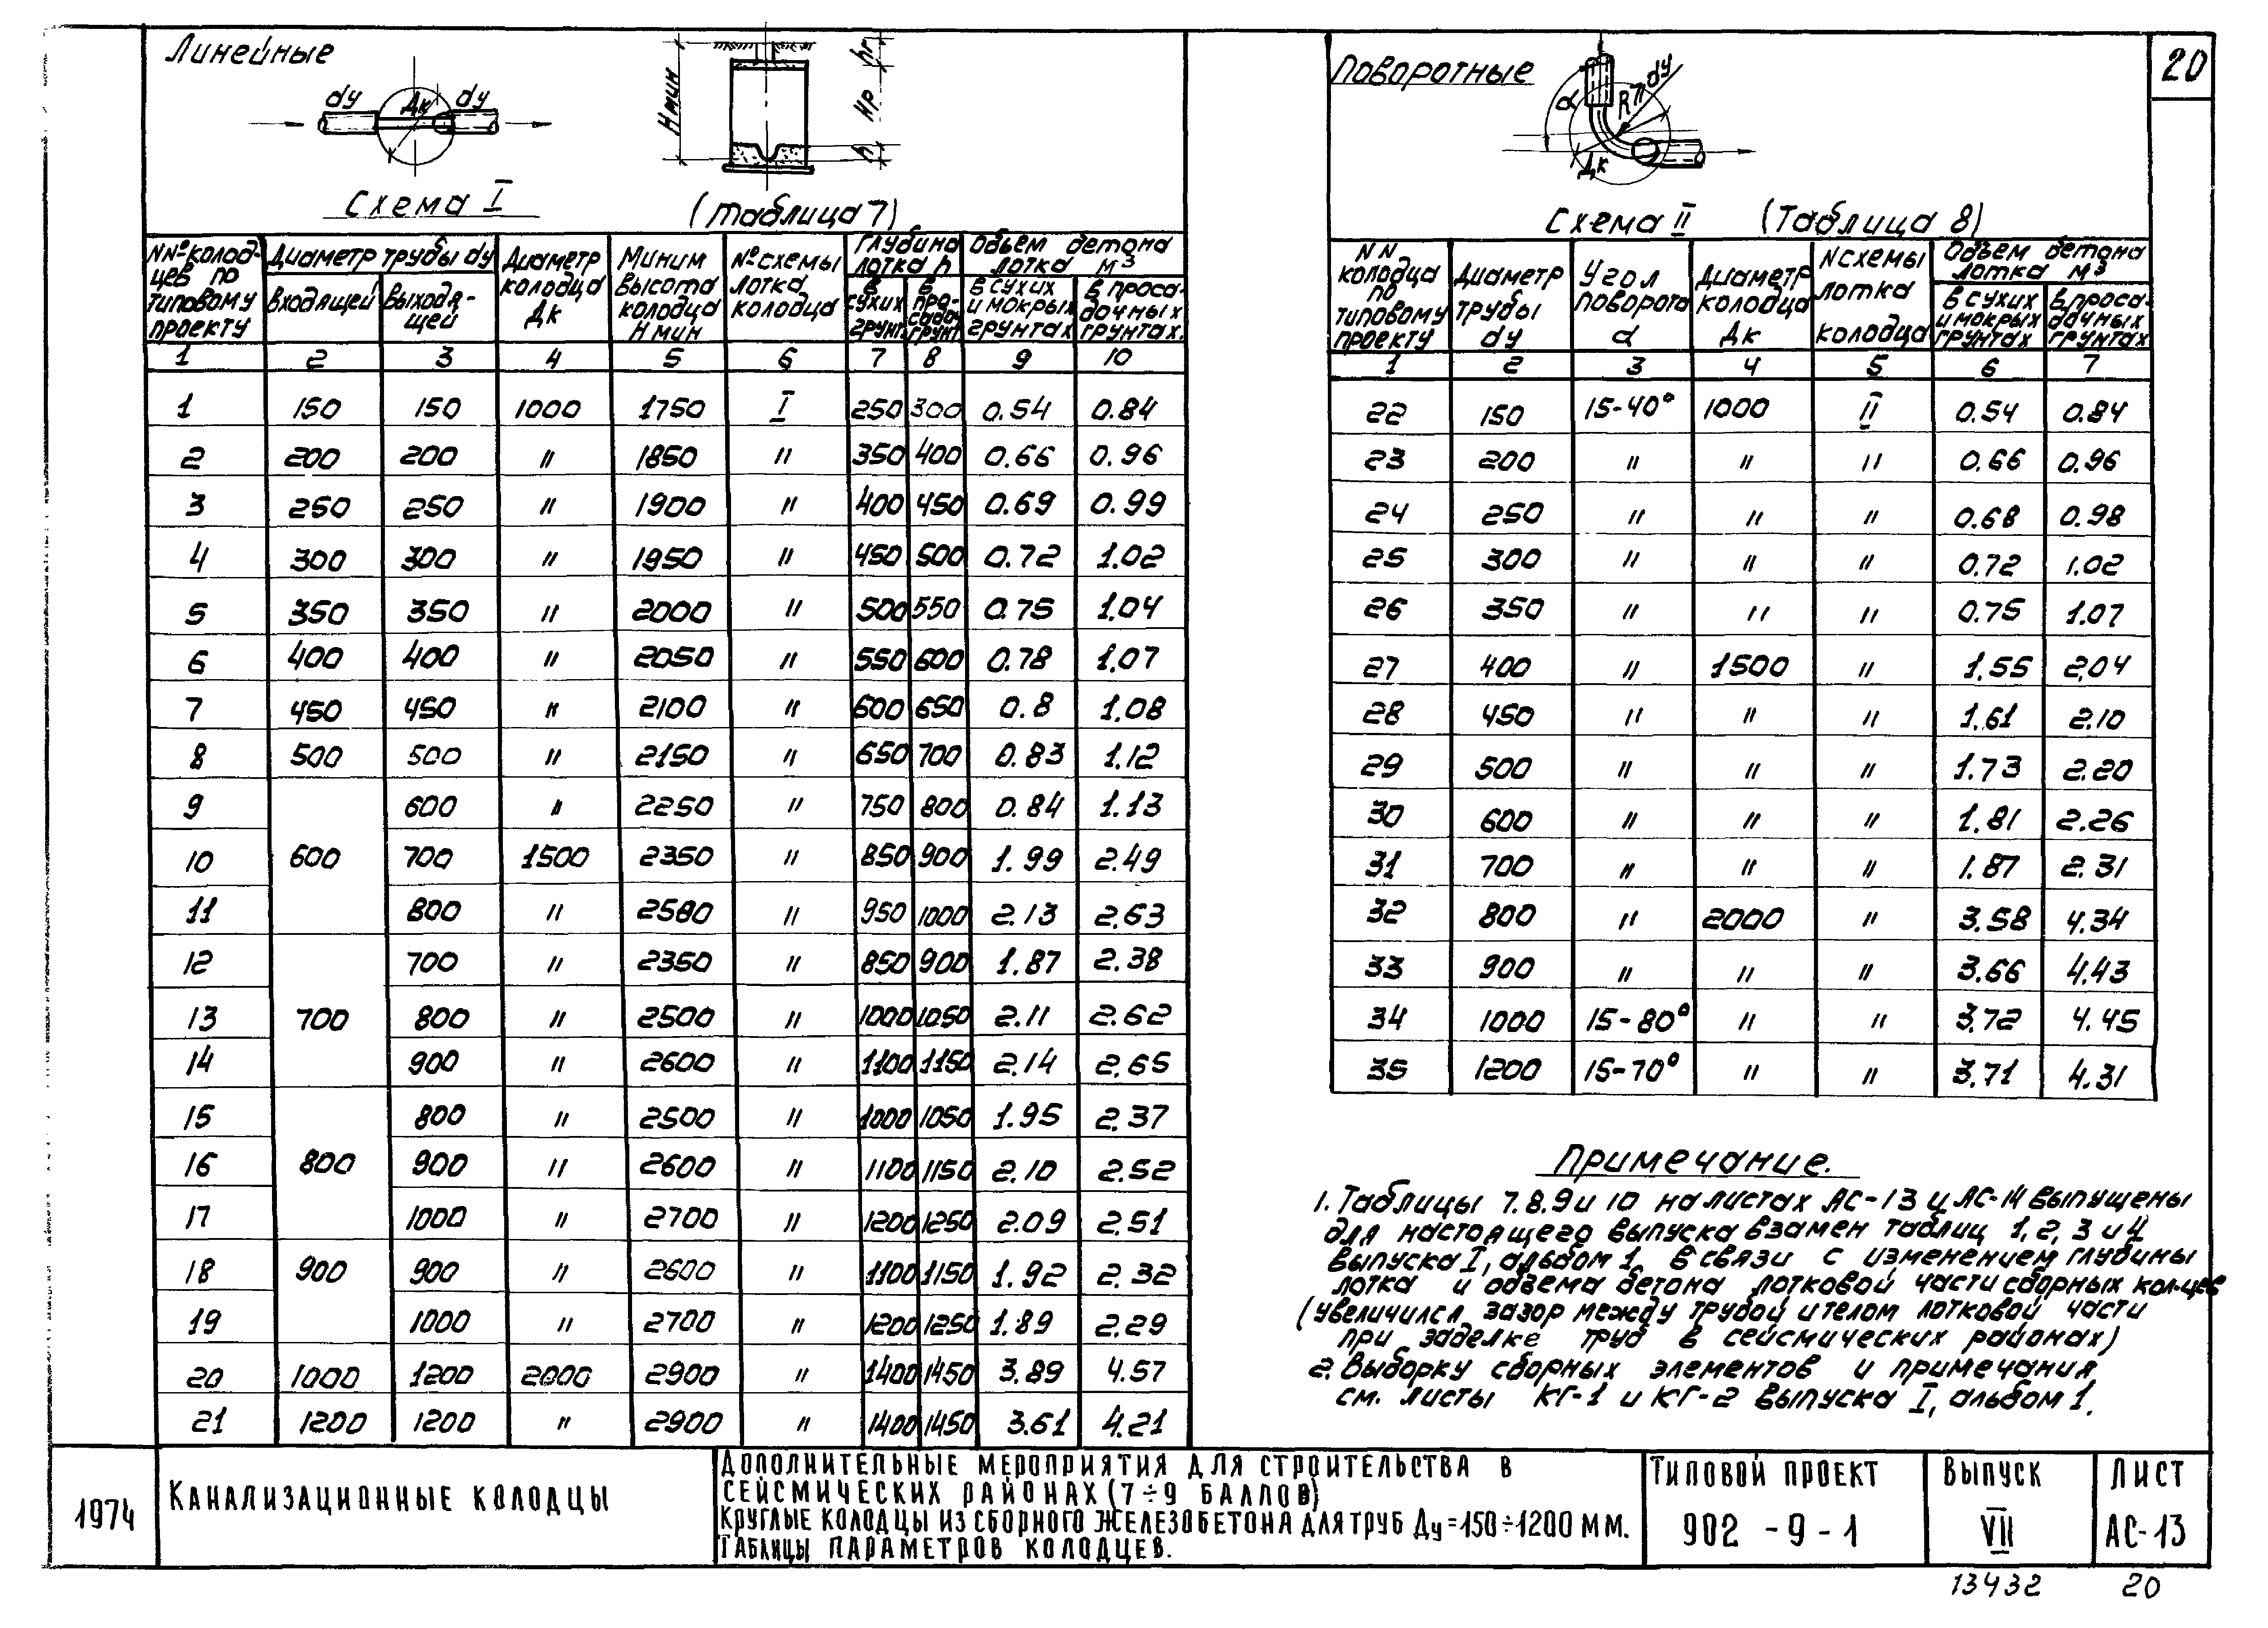 Линейные
dу Дк dу
Нмин hг Нр h
Схема I (таблица 7)
NNº колод-цев по типовому проекту | Диаметр трубы dу | Диаметр колодца Дк | Миним высота колодца Н мин | Nº схемы лотка колодца | Глубина лотка h | Объем бетона лотка м³
входящей | выходя-щей | в сухих грунт. | в про-садоч. грунт. | в сухих и мокрых грунтах | в проса-дочных грунтах.
1 2 3 4 5 6 7 8 9 10
1 150 150 1000 1750 I 250 300 0.54 0.84
2 200 200 " 1850 " 350 400 0.66 0.96
3 250 250 " 1900 " 400 450 0.69 0.99
4 300 300 " 1950 " 450 500 0.72 1.02
5 350 350 " 2000 " 500 550 0.75 1.04
6 400 400 " 2050 " 550 600 0.78 1.07
7 450 450 " 2100 " 600 650 0.8 1.08
8 500 500 " 2150 " 650 700 0.83 1.12
9 600 " 2250 " 750 800 0.84 1.13
10 600 700 1500 2350 " 850 900 1.99 2.49
11 800 " 2580 " 950 1000 2.13 2.63
12 700 " 2350 " 850 900 1.87 2.38
13 700 800 " 2500 " 1000 1050 2.11 2.62
14 900 " 2600 " 1100 1150 2.14 2.65
15 800 " 2500 " 1000 1050 1.95 2.37
16 800 900 " 2600 " 1100 1150 2.10 2.52
17 1000 " 2700 " 1200 1250 2.09 2.51
18 900 900 " 2600 " 1100 1150 1.92 2.32
19 1000 " 2700 " 1200 1250 1.89 2.29
20 1000 1200 2000 2900 " 1400 1450 3.89 4.57
21 1200 1200 " 2900 " 1400 1450 3.61 4.21
Поворотные
20
α Rл dу Дк
Схема II (Таблица 8)
NN колодца по типовому проекту | Диаметр трубы dу | Угол поворота α | Диаметр колодца Дк | N схемы лотка колодца | Объем бетона лотка м³
в сухих и мокрых грунтах | в проса-дочных грунтах
1 2 3 4 5 6 7
22 150 15-40° 1000 II 0.54 0.84
23 200 " " " 0.66 0.96
24 250 " " " 0.68 0.98
25 300 " " " 0.72 1.02
26 350 " " " 0.75 1.07
27 400 " 1500 " 1.55 2.04
28 450 " " " 1.61 2.10
29 500 " " " 1.73 2.20
30 600 " " " 1.81 2.26
31 700 " " " 1.87 2.31
32 800 " 2000 " 3.58 4.34
33 900 " " " 3.66 4.43
34 1000 15-80° " " 3.72 4.45
35 1200 15-70° " " 3.71 4.31
Примечание.
1. Таблицы 7.8.9 и 10 на листах АС-13 и АС-14 выпущены
для настоящего выпуска взамен таблиц 1, 2, 3 и 4
выпуска I, альбом 1, в связи с изменением глубины
лотка и объема бетона лотковой части сборных кол-цев
(увеличился зазор между трубой и телом лотковой части
при заделке труб в сейсмических районах)
2. Выборку сборных элементов и примечания
см. листы КГ-1 и КГ-2 выпуска I, альбом 1.
1974
Канализационные колодцы
Дополнительные мероприятия для строительства в
сейсмических районах (7÷9 баллов)
Круглые колодцы из сборного железобетона для труб Ду=150÷1200 мм.
Таблицы параметров колодцев.
Типовой проект
902-9-1
Выпуск
VII
Лист
АС-13
13432 20